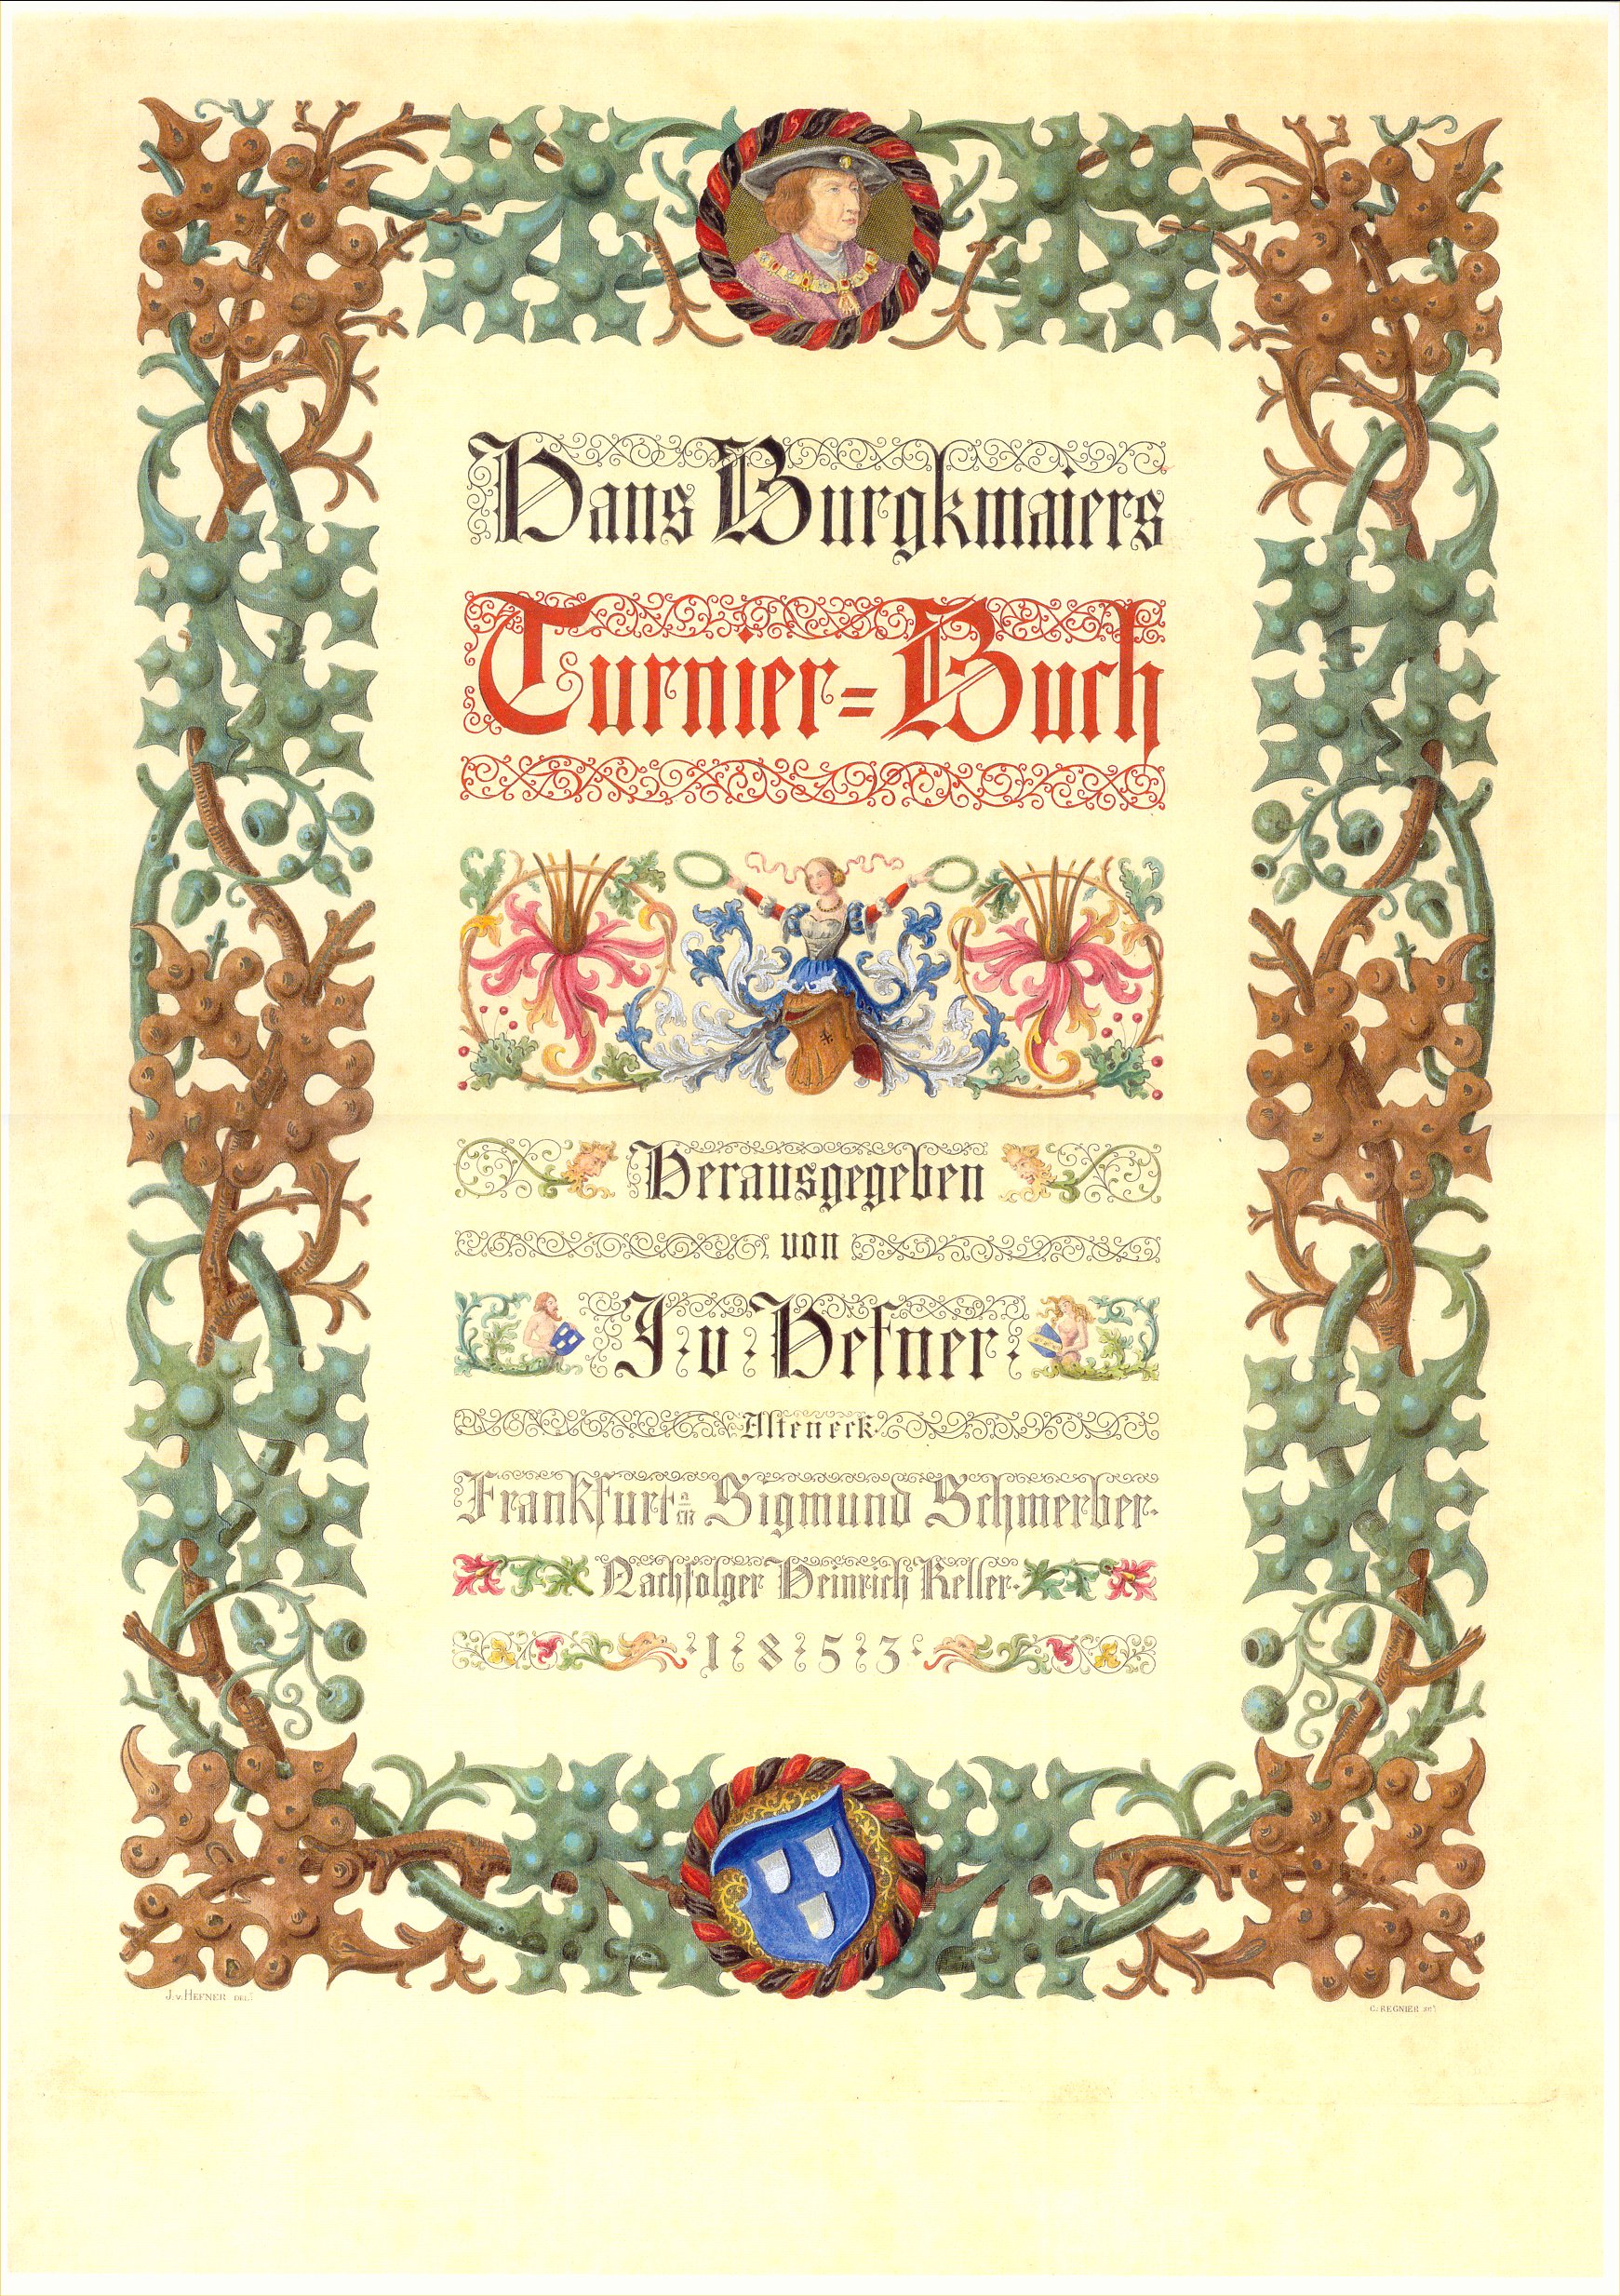 Hans Burgkmaiers
Turnier=Buch
Herausgegeben
von
J: v: Hefner:
Alteneck
Frankfurt a/M Sigmund Schmerber.
Nachfolger Heinrich Keller.
1853
J. v. HEFNER DEL:
C. REGNIER sc: